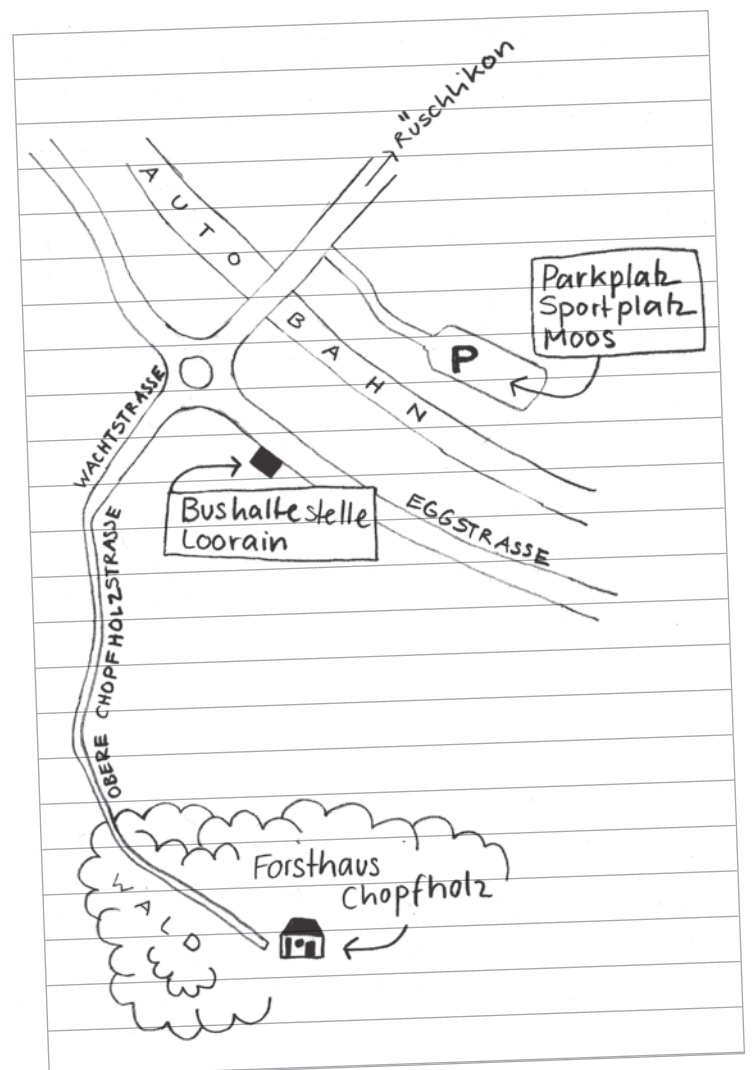 RÜSCHLIKON
AUTO
BAHN
Parkplatz
Sportplatz
Moos
P
WACHTSTRASSE
Bushaltestelle
Loorain
EGGSTRASSE
OBERE CHOPFHOLZSTRASSE
Forsthaus
Chopfholz
WALD